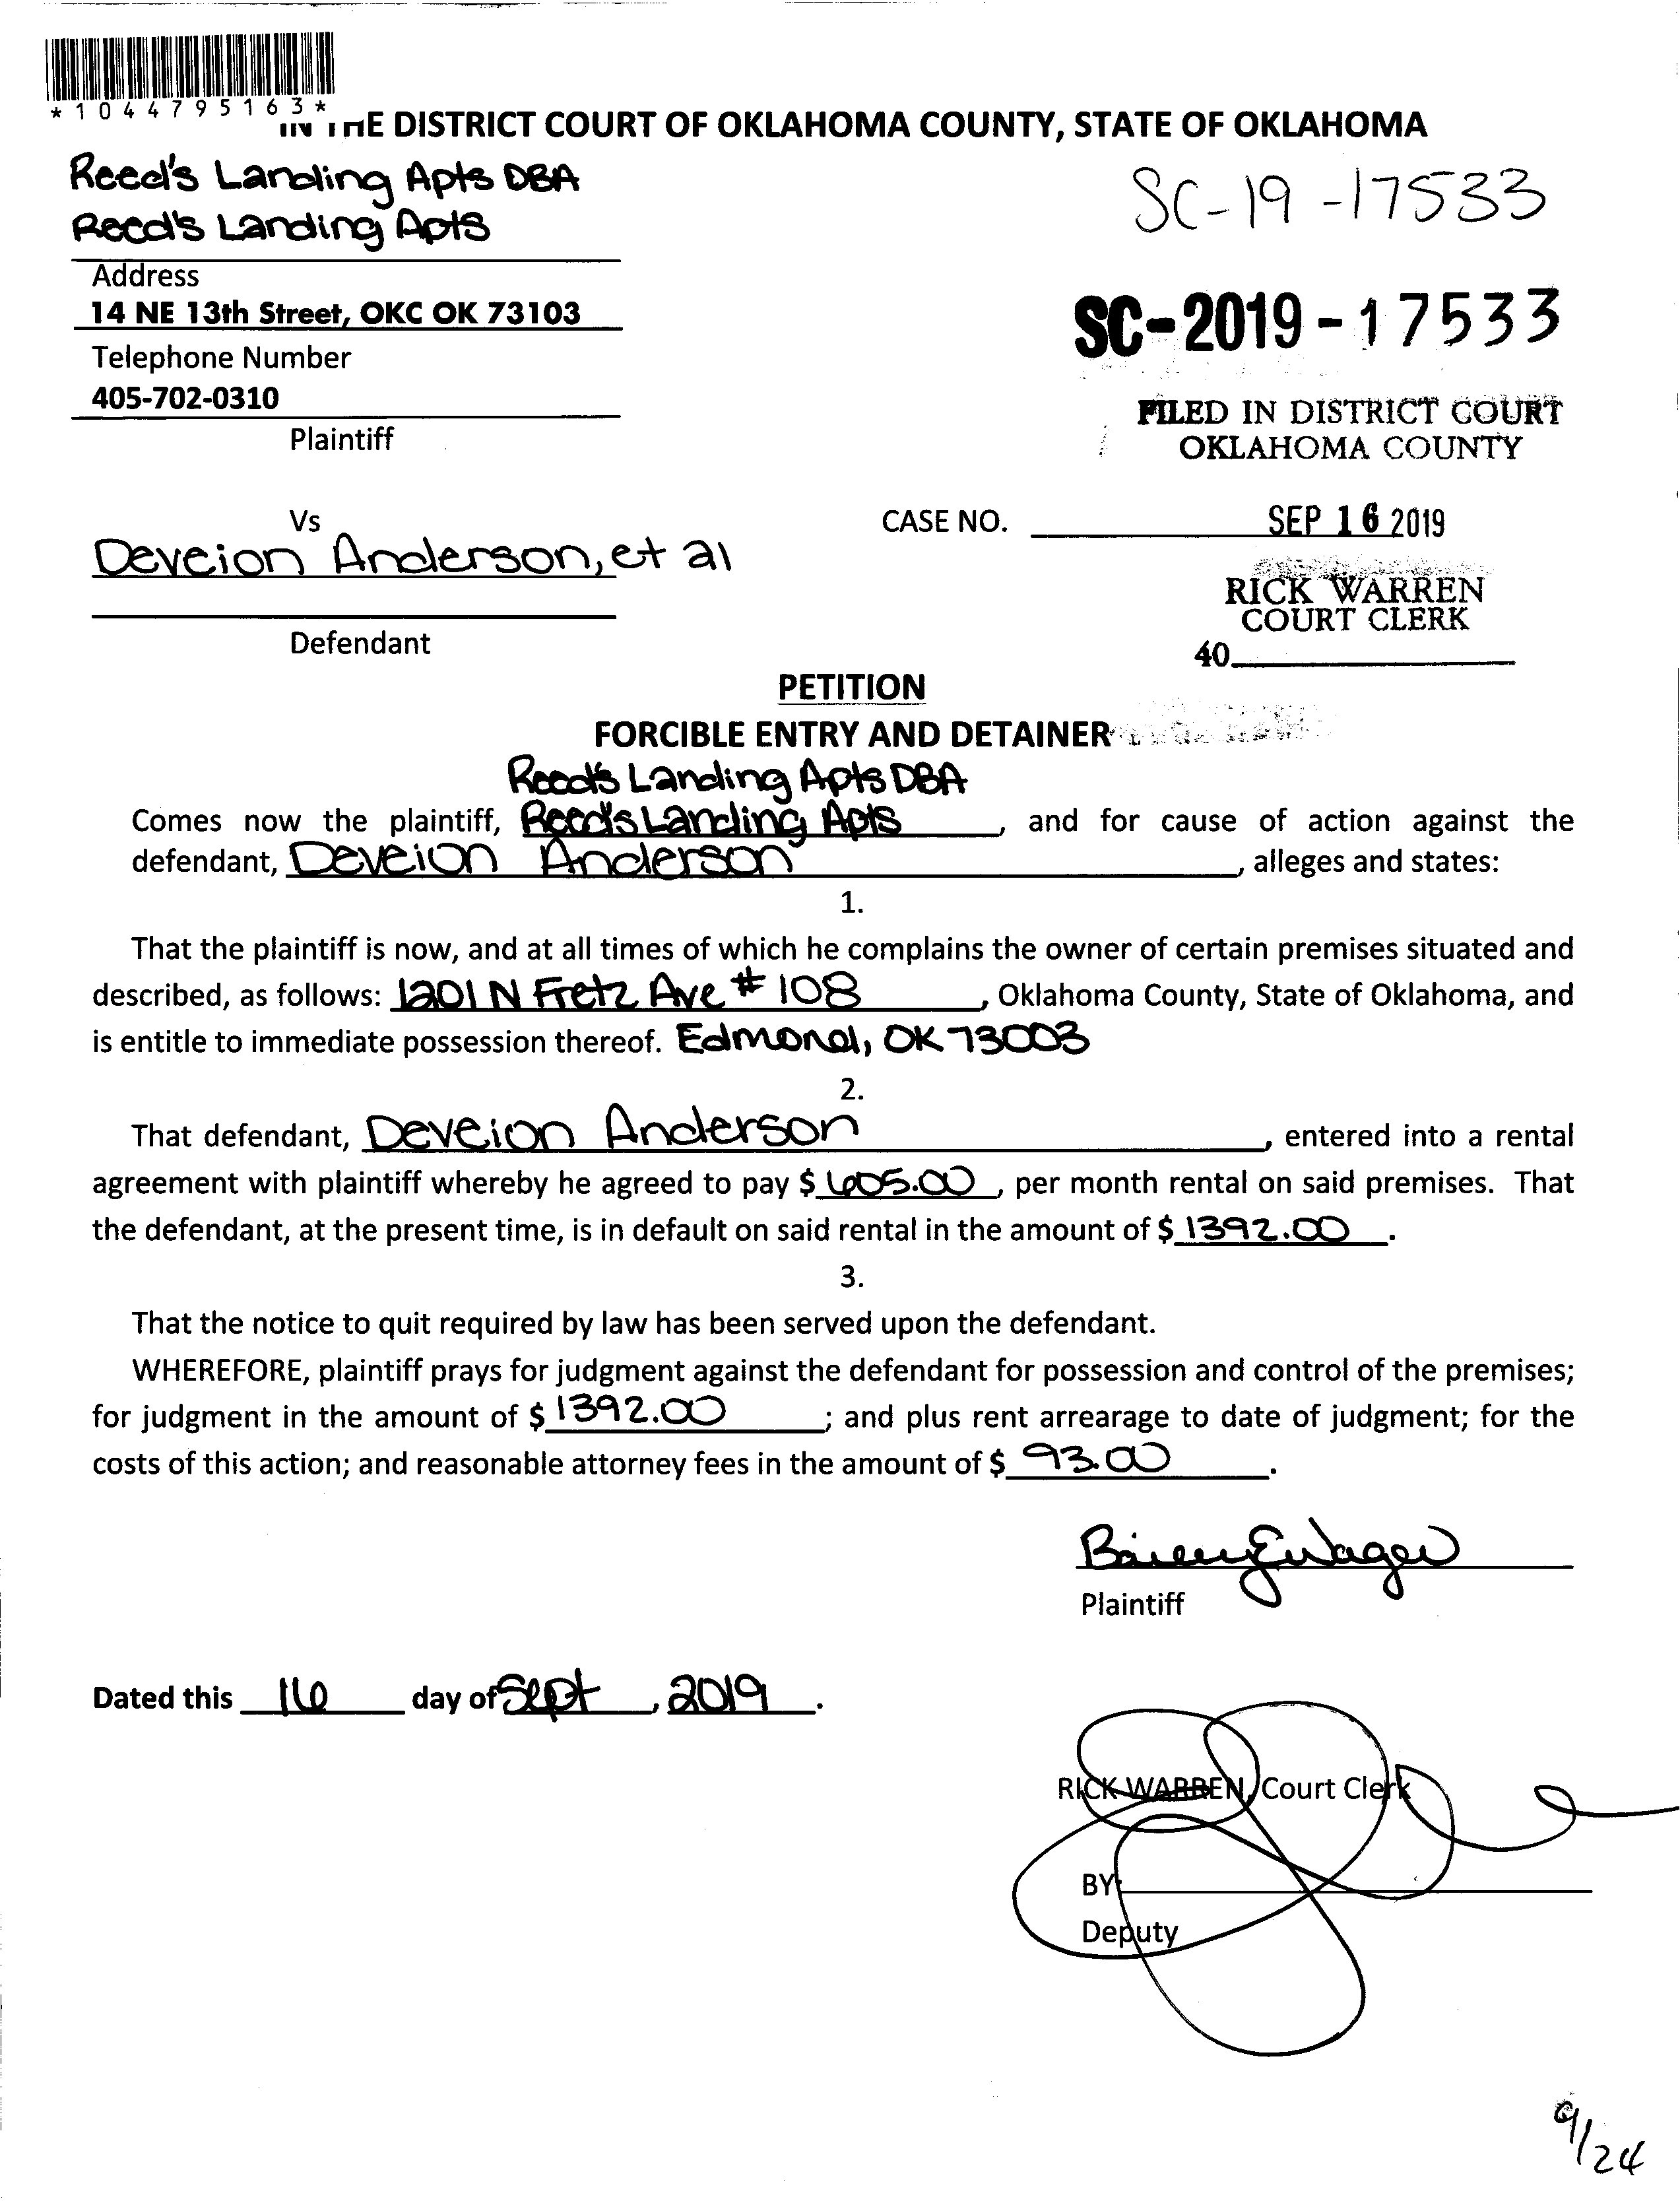 *1044795163*
IN THE DISTRICT COURT OF OKLAHOMA COUNTY, STATE OF OKLAHOMA
Reed's Landing Apts DBA
Reed's Landing Apts
SC-19-17533
Address
14 NE 13th Street, OKC OK 73103
SC-2019-17533
Telephone Number
405-702-0310
FILED IN DISTRICT COURT
OKLAHOMA COUNTY
Plaintiff
Vs
CASE NO.
SEP 16 2019
Deveion Anderson, et al
RICK WARREN
COURT CLERK
Defendant
40
PETITION
FORCIBLE ENTRY AND DETAINER
Reed's Landing Apts DBA
Comes now the plaintiff, Reed's Landing Apts, and for cause of action against the
defendant, Deveion Anderson, alleges and states:
1.
That the plaintiff is now, and at all times of which he complains the owner of certain premises situated and
described, as follows: 1201 N Fretz Ave # 108, Oklahoma County, State of Oklahoma, and
is entitle to immediate possession thereof. Edmond, OK 73003
2.
That defendant, Deveion Anderson, entered into a rental
agreement with plaintiff whereby he agreed to pay $ 605.00, per month rental on said premises. That
the defendant, at the present time, is in default on said rental in the amount of $ 1392.00.
3.
That the notice to quit required by law has been served upon the defendant.
WHEREFORE, plaintiff prays for judgment against the defendant for possession and control of the premises;
for judgment in the amount of $ 1392.00; and plus rent arrearage to date of judgment; for the
costs of this action; and reasonable attorney fees in the amount of $ 93.00.
Plaintiff
Dated this 16 day of Sept, 2019.
RICK WARREN, Court Clerk
BY
Deputy
9/24